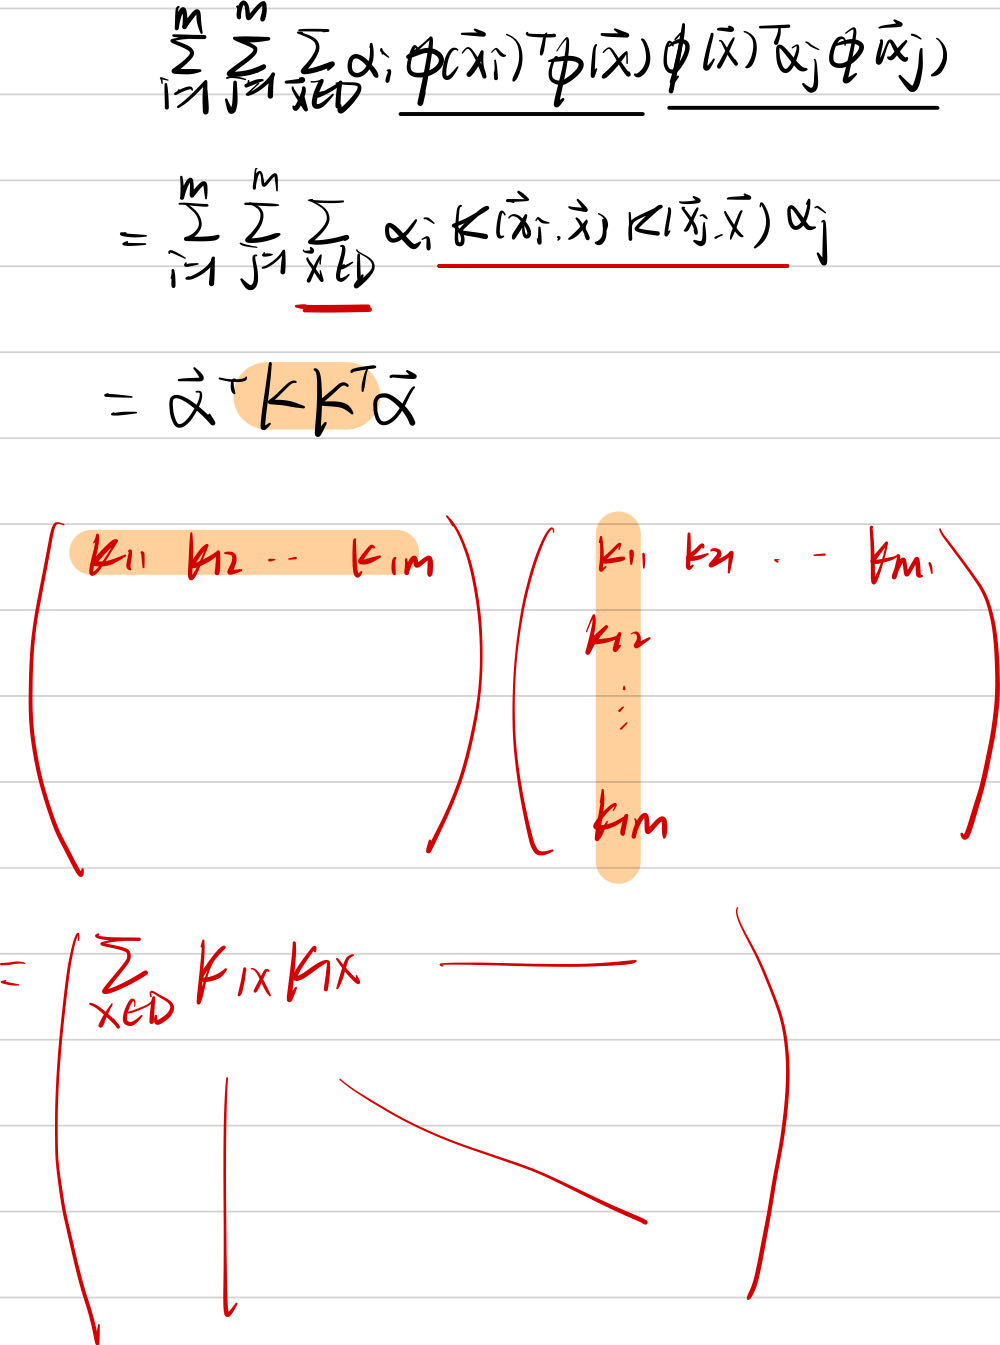 ∑_{i=1}^{m} ∑_{j=1}^{m} ∑_{x⃗∈D} α_i φ(x⃗_i)^T φ(x⃗) φ(x⃗)^T α_j φ(x⃗_j)
= ∑_{i=1}^{m} ∑_{j=1}^{m} ∑_{x⃗∈D} α_i K(x⃗_i, x⃗) K(x⃗_j, x⃗) α_j
= α⃗^T K K^T α⃗
( K_11 K_12 ... K_1m ) ( K_11 K_21 ... K_m1 )
K_12
⋮
K_1m
= ( ∑_{x∈D} K_1x K_1x )